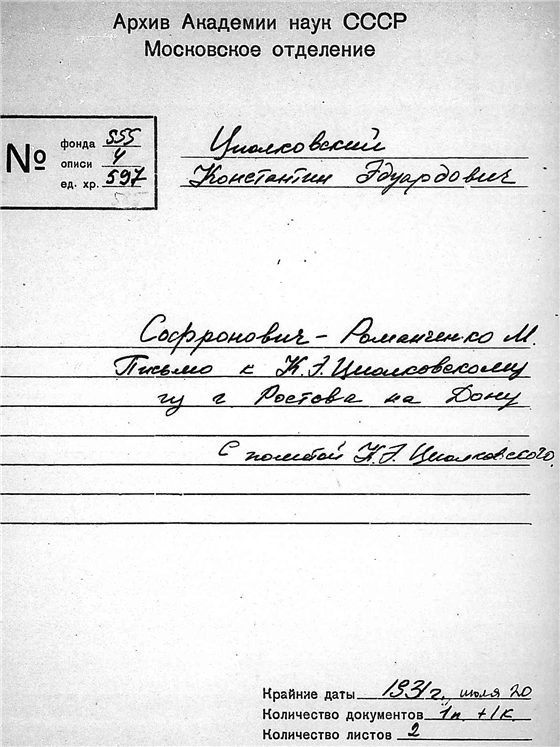 Архив Академии наук СССР
Московское отделение
№
фонда 555
описи 4
ед. хр. 597
Циолковский
Константин Эдуардович
Софронович - Романченко М.
Письмо к К.Э. Циолковскому
из г. Ростова на Дону
С пометой К.Э. Циолковского.
Крайние даты 1931 г., июля 20
Количество документов 1п. + 1к.
Количество листов 2